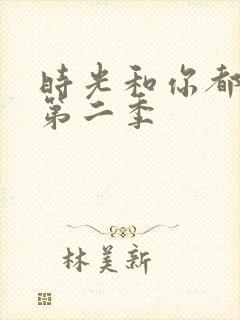 時光和你都
第二季
林美新